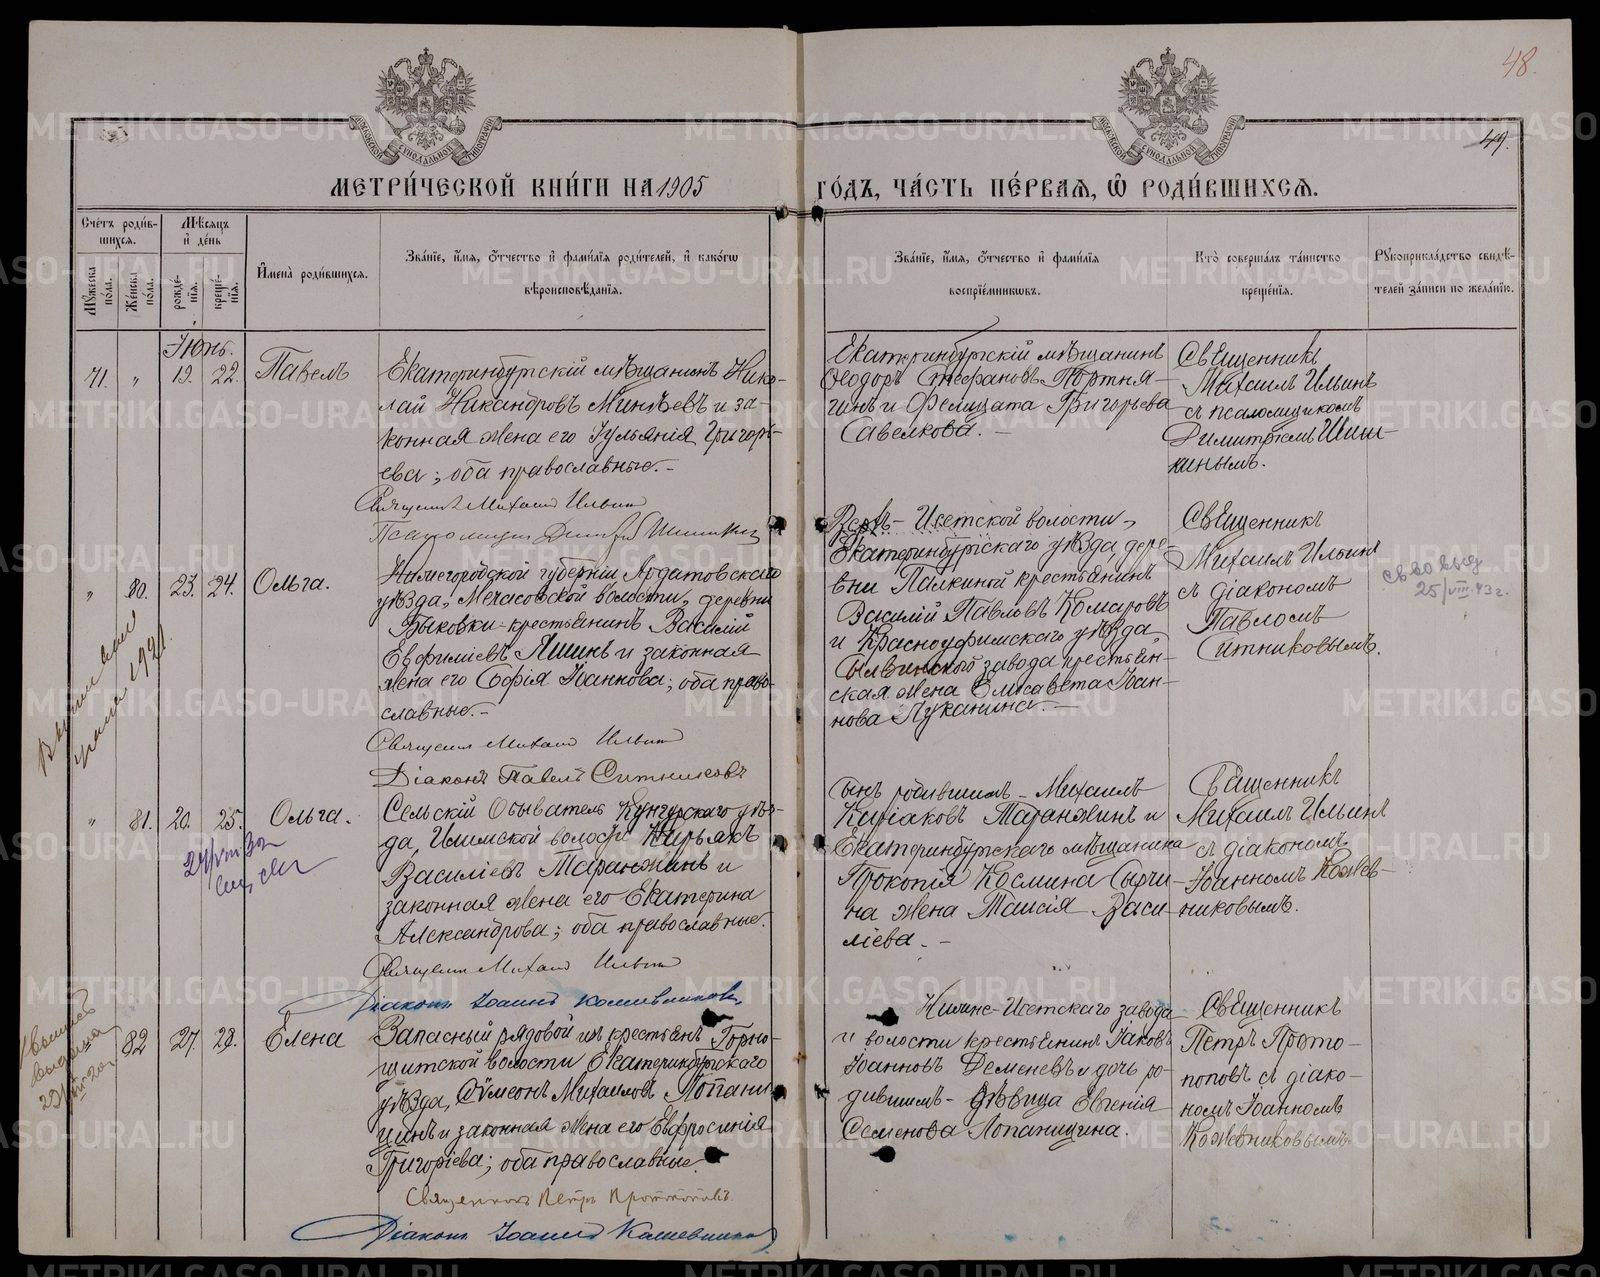 48.
49.
МЕТРИ́ЧЕСКОЙ КНИ́ГИ НА 1905 ГО́ДЪ, ЧА́СТЬ ПЕ́РВАѦ, Ѡ҆ РОДИ́ВШИХСѦ.
Сче́тъ роди́в-
шихсѧ.
Мꙋ́жеска по́ла.
Же́нска по́ла.
Мѣ́сѧцъ
и҆ де́нь
рожде́-
нїѧ.
креще́-
нїѧ.
И҆мена̀ роди́вшихсѧ.
Зва́нїе, и҆́мѧ, о҆́тчество и҆ фами́лїѧ роди́телей, и҆ како́гѡ
вѣроисповѣ́данїѧ.
Зва́нїе, и҆́мѧ, о҆́тчество и҆ фами́лїѧ
воспрїе́мникѡвъ.
Кто̀ соверша́лъ та́инство
креще́нїѧ.
Рꙋкоприкла́дство свидѣ́-
телей за́писи по жела́нїю.
Іюнь.
71. „ 19. 22. Павелъ
Екатеринбургскій мѣщанинъ Нико-
лай Никандровъ Минѣевъ и за-
конная жена его Іульянія Григорь-
ева; оба православные.-
Священникъ Михаилъ Ильинъ
Псаломщикъ Димитрій Шишкинъ
Екатеринбургскій мѣщанинъ
Ѳеодоръ Стефановъ Портня-
гинъ и Фелицата Григорьева
Савелкова. -
Священникъ
Михаилъ Ильинъ
съ псаломщикомъ
Димитріемъ Шиш-
кинымъ.
„ 80. 23. 24. Ольга.
Нижегородской губерніи Ардатовскаго
уѣзда, Мечасовской волости, деревни
Быковки крестьянинъ Василій
Евфиміевъ Яшинъ и законная
жена его Софія Іоаннова; оба право-
славные.-
Священникъ Михаилъ Ильинъ
Діаконъ Павелъ Ситниковъ
Верхъ-Исетской волости,
Екатеринбургскаго уѣзда, дере-
вни Палкиной крестьянинъ
Василій Павловъ Комаровъ
и Красноуфимскаго уѣзда,
Сылвинскаго завода крестьян-
ская жена Елисавета Іоан-
нова Луканина. -
Священникъ
Михаилъ Ильинъ
съ діакономъ
Павломъ
Ситниковымъ.
25/VIII.43г.
1921.
„ 81. 20. 25. Ольга.
Сельскій обыватель Кунгурскаго уѣз-
да, Ишимской волости Кирьякъ
Василіевъ Таранжинъ и
законная жена его Екатерина
Александрова; оба православные.
Священникъ Михаилъ Ильинъ
Діаконъ Іоаннъ Кожевниковъ
сынъ родившихъ - Михаилъ
Киріаковъ Таранжинъ и
Екатеринбургскаго мѣщанина
Прокопія Космина Сычи-
на жена Таисія Васи-
ліева. -
Священникъ
Михаилъ Ильинъ
съ діакономъ
Іоанномъ Кожев-
никовымъ.
82 27. 28. Елена
Запасный рядовой изъ крестьянъ Горно-
щитской волости Екатеринбургскаго
уѣзда, Сѵмеонъ Михаиловъ Лопани-
цинъ и законная жена его Евфросинія
Григоріева; оба православные.
Священникъ Петръ Протопоповъ
Діаконъ Іоаннъ Кожевниковъ
Нижне-Исетскаго завода
и волости крестьянинъ Іаковъ
Іоанновъ Деменевъ и дочь ро-
дившихъ - дѣвица Евгенія
Семенова Лопаницина.
Священникъ
Петръ Прото-
поповъ съ діако-
номъ Іоанномъ
Кожевниковымъ.
METRIKI.GASO-URAL.RU